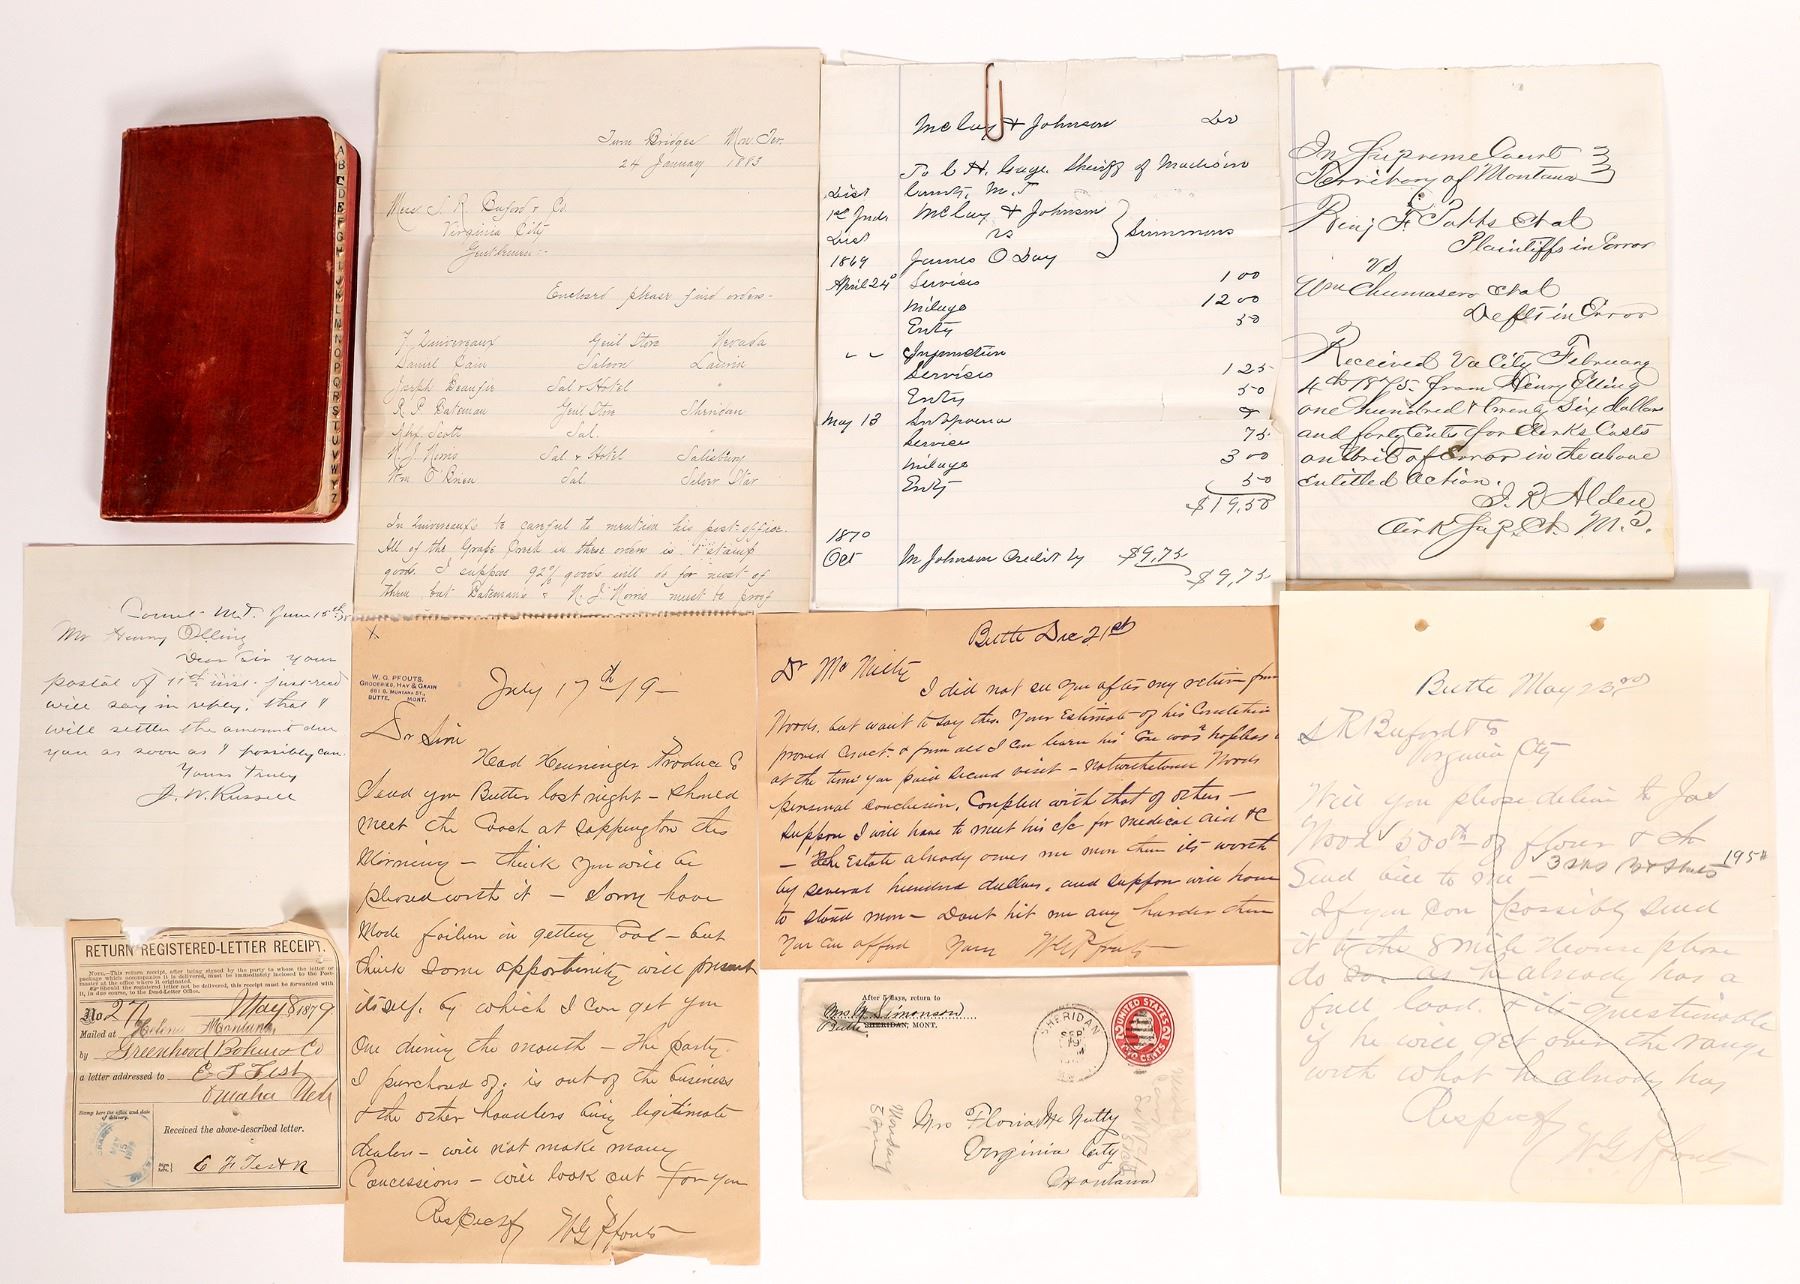 A
B
C
D
E
F
G
H
I
J
K
L
M
N
O
P
Q
R
S
T
U
V
W
X
Y
Z
Twin Bridges Mon. Ter.
24 January 1883
Mess S. R. Buford & Co.
Virginia City
Gentlemen:-
Enclosed please find orders-
Gen'l Store Nevada
Daniel Cain Saloon Laurin
Joseph Beaufie Sal & Hotel "
R. P. Bateman Gen'l Store Sheridan
Scott Sal. "
N. J. Norris Sal & Hotel Salisbury
Wm O'Brien Sal. Silver Star
be careful to mention his post-office.
All of the Grape in these orders is stamp
goods. I suppose 92% goods will do for most of
them, but Bateman's & N. J. Norris must be proof
McCay & Johnson Dr
To C H. Gage. Sheriff of Madison
Dist County, M.T
McCay & Johnson
Dist vs } Summons
1869 James O Day
April 24 Services 1 00
Mileage 12 00
Entry 50
" " Injunction
Services 1 25
Entry 50
May 13 Subpoena
Service 75
Mileage 3 00
Entry 50
$19,50
1870
Oct M Johnson Credit by $9,75
$9,75
In Supreme Court
Territory of Montana
Benj F. Potts et al
Plaintiffs in Error
vs
Wm Chumasero et al
Defts in Error
Received Va City February
4th 1875. from Henry Elling
one hundred & twenty six dollars
and forty Cents for Clerks Costs
on Writ of Error in the above
entitled action.
I. R. Alden
Clerk Sup. Ct. M. T.
M.T. June 15th
Mr Henry Elling
Dear Sir Your
postal of 11th inst. just recd
will say in reply, that I
will settle the amount due
you as soon as I possibly can.
Yours Truly
J. W. Russell
RETURN REGISTERED-LETTER RECEIPT.
NOTE.—This return receipt, after being signed by the party to whom the letter or
package which accompanies it is delivered, must be immediately inclosed to the Post-
master at the office where it originated.
Should the registered letter not be delivered, this receipt must be forwarded with
it, in due course, to the Dead-Letter Office.
No 271 May 8 1879
Mailed at Helena Montana
by Greenhood Bohm & Co
a letter addressed to E F Test
Omaha Neb
Stamp here the office and date
of delivery.
Received the above-described letter.
Sign here.
E F Test
X
W. G. PFOUTS,
GROCERIES, HAY & GRAIN
681 S. MONTANA ST.,
BUTTE, MONT.
July 17th /9-
Dr Sir:
Head Henninger Produce Co
Send you Butter last night - should
meet the Coach at Sappington this
Morning - think you will be
pleased with it - Sorry have
Made failure in getting - but
think some opportunity will present
itself. by which I can get you
one during the month - the party
I purchased of. is out of the business
& the other handlers being legitimate
dealers - will not make many
Concessions - will look out for you
Respectfy W G Pfouts
Butte Dec 21st
Dr Mc Nulty
I did not see you after my return from
Woods, but want to say this. Your Estimate of his Condition
proved Exact. & from all I can learn his Case was hopeless
at the time you paid second visit - notwithstanding Woods
personal conclusion. Coupled with that of others -
suppose I will have to meet his a/c for medical aid &c
- The Estate already owes me more than its worth
by several hundred dollars, and suppose will have
to stand more - Dont hit me any harder than
You can afford Yours W G Pfouts
After 5 days, return to
Mrs Simonson
Butte SHERIDAN, MONT.
SHERIDAN
SEP
19
UNITED STATES
TWO CENTS
Mrs Floria Mc Nulty
Virginia City
Montana
Monday
Butte May 23rd
S R Buford & Co
Virginia City
Will you please deliver to Jas
Wood 500 lb of flour &
Send bill to me -
If you can possibly send
it to the 8 mile House please
do so. as he already has a
full load. & its questionable
if he will get over the range
with what he already has
Respectfy
W G Pfouts